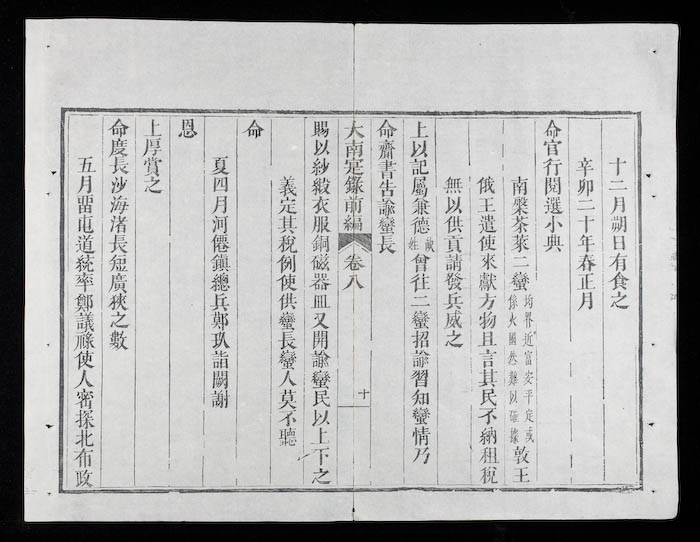 十二月朔日有食之
辛卯二十年春正月
命官行閱選小典
南槃茶萊二蠻
均界近富安平定或
係火國然難以確據
敦王
俄王遣使來獻方物且言其民不納租稅
無以供貢請發兵威之
上以記屬兼德
姓
曾往二蠻招諭習知蠻情乃
命齎書告諭蠻長
大南寔錄前編
卷八
十
賜以紗緞衣服銅磁器皿又開諭蠻民以上下之
義定其稅例使供蠻長蠻人莫不聽
命
夏四月河僊鎮總兵鄭玖詣闕謝
恩
上厚賞之
命度長沙海渚長短廣狹之數
五月畱屯道統率鄭議祿使人密探北布政